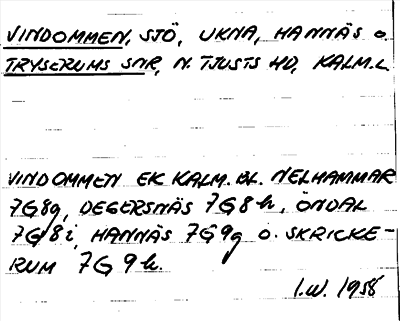 VINDOMMEN, SJÖ, UKNA, HANNÄS o.
TRYSERUMS SNR, N. TJUSTS HD, KALM.L.
VINDOMMEN EK KALM. BL. NELHAMMAR
7G8g, DEGERSNÄS 7G8h, ÖNDAL
7G8i, HANNÄS 7G9g O. SKRICKE-
RUM 7G9h.
I.W. 1958